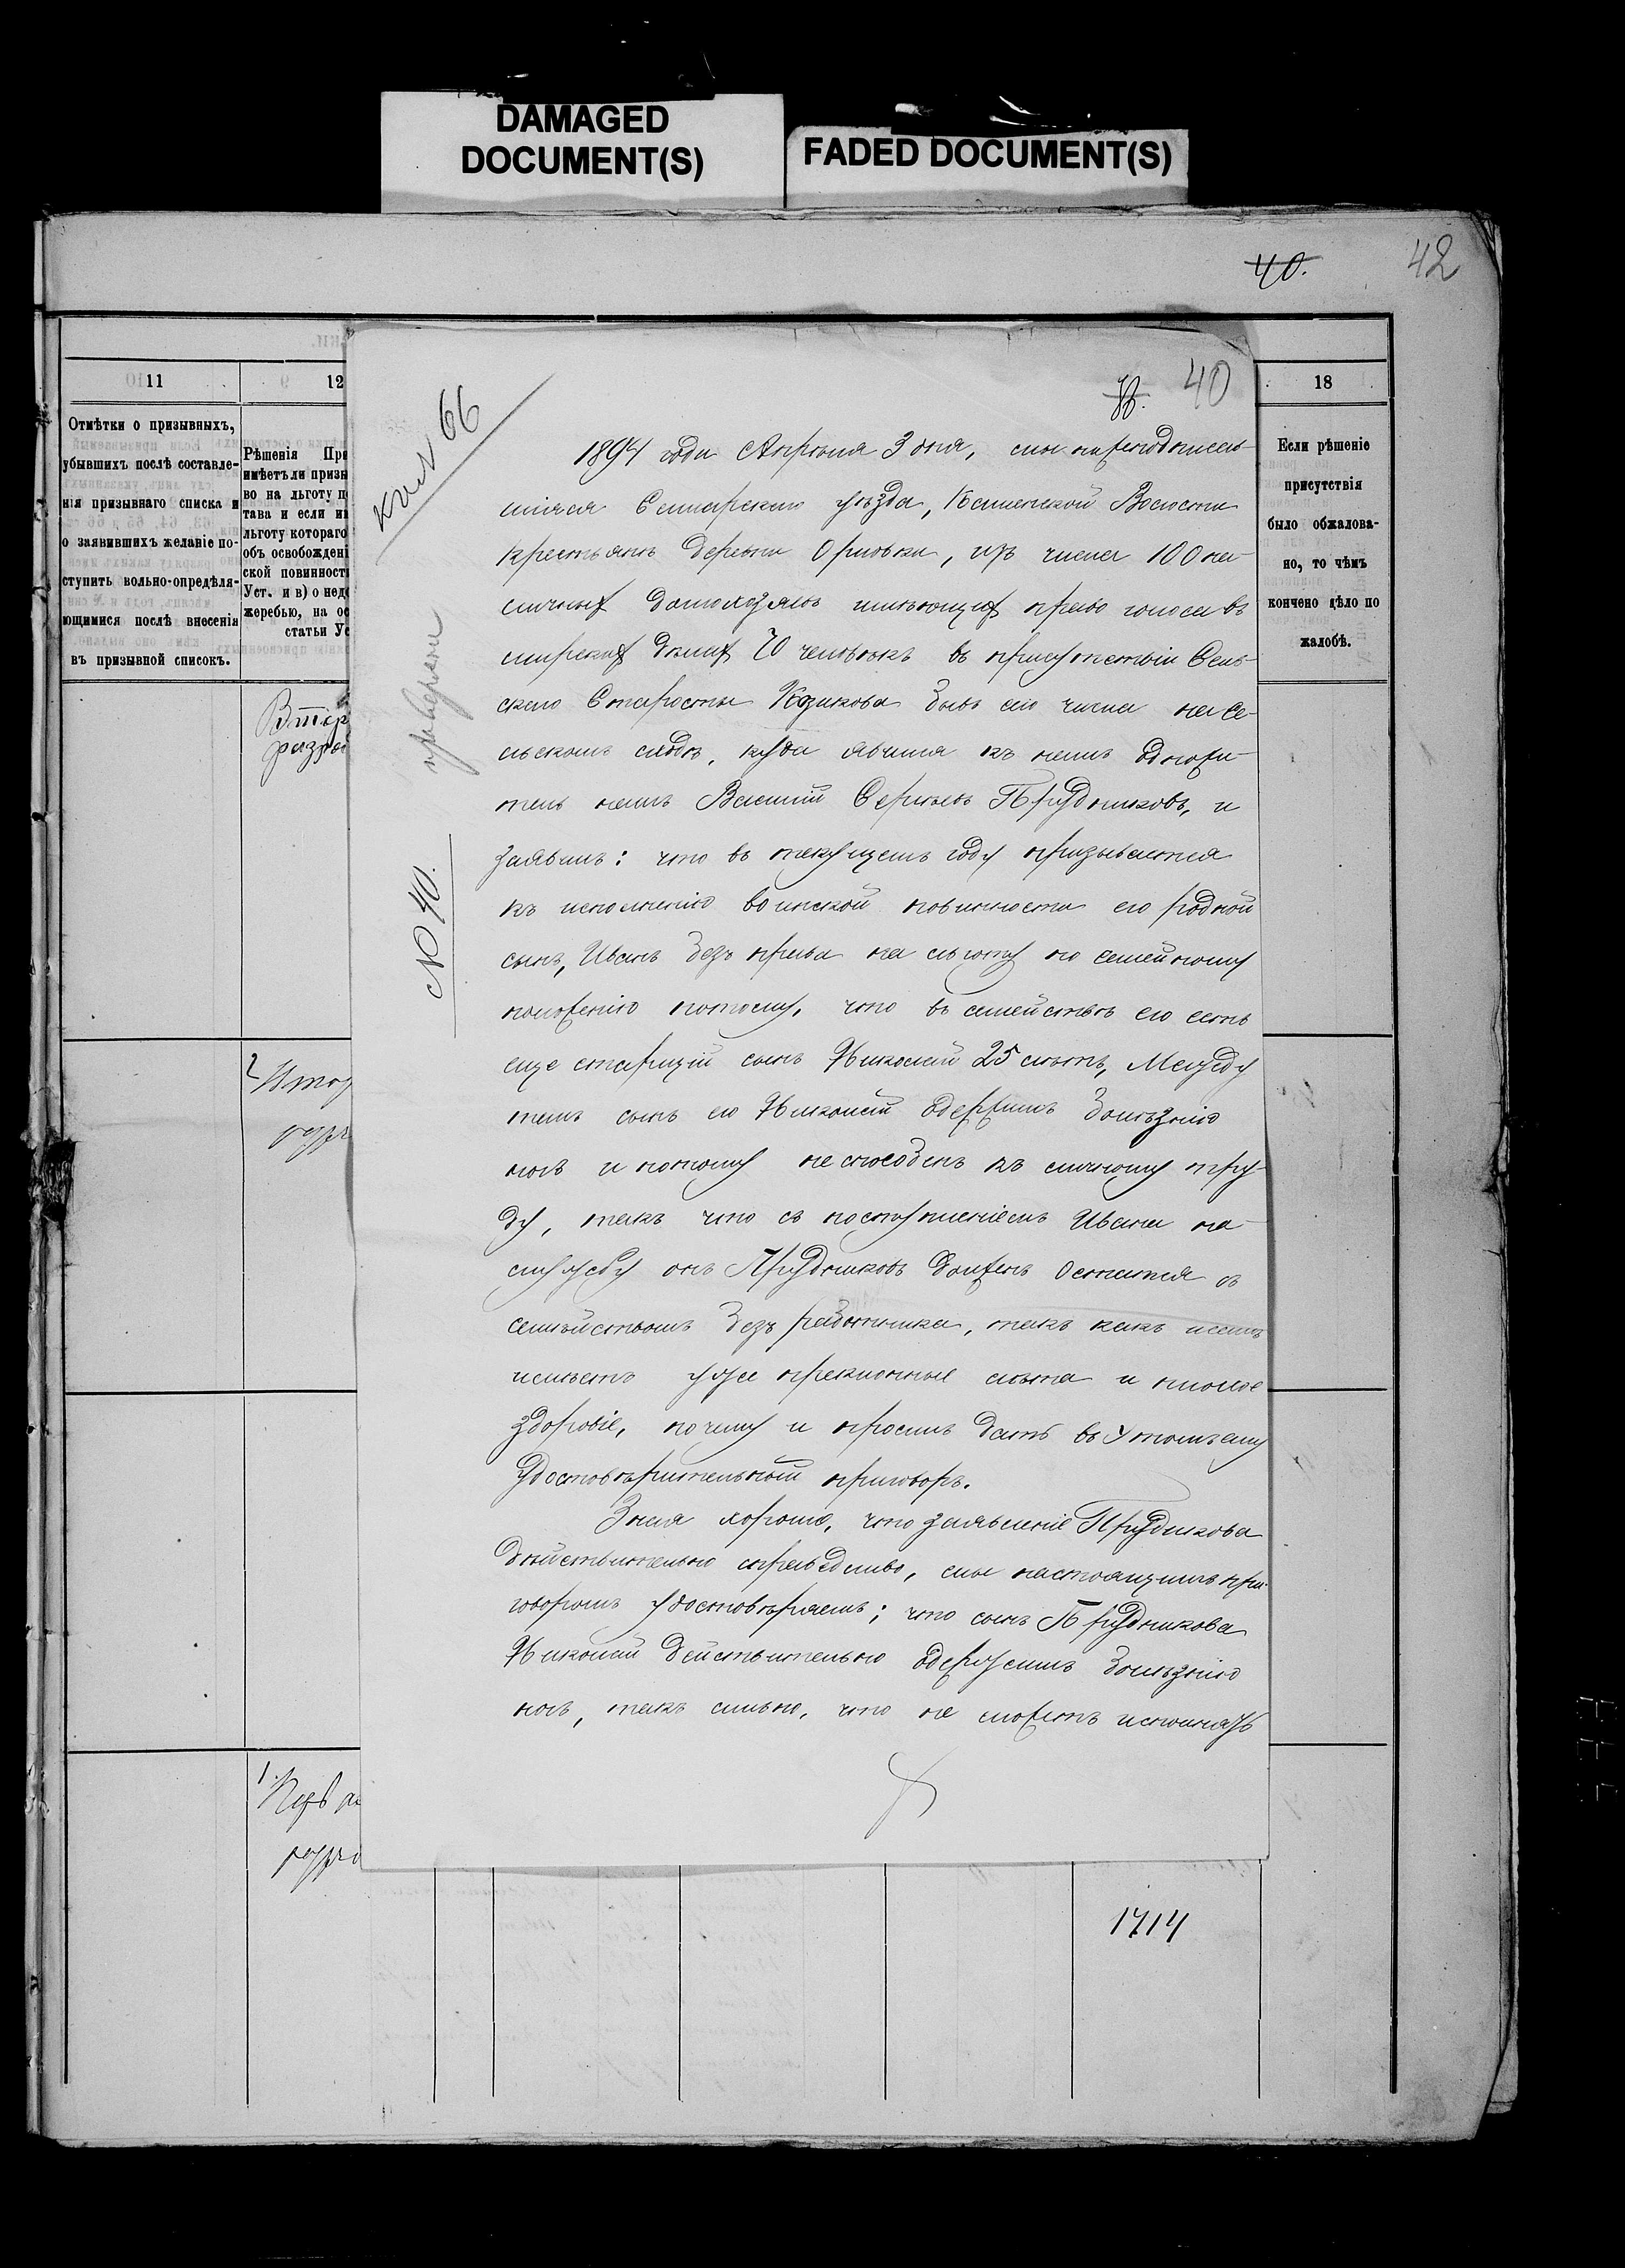 DAMAGED
DOCUMENT(S)
FADED DOCUMENT(S)
40.
42
11
12
18
Отмѣтки о призывныхъ,
убывшихъ послѣ составле-
нія призывнаго списка и
о заявившихъ желаніе по-
ступить вольно-опредѣля-
ющимися послѣ внесенія
въ призывной списокъ.
Рѣшенія При
имѣетъ ли призы
во на льготу п
тава и если им
льготу которого
объ освобожденi
ской повинност
Уст. и в) о недо
жеребью, на ос
статьи Ус
Если рѣшеніе
присутствія
было обжалова-
но, то чѣмъ
кончено дѣло по
жалобѣ.
Втор
разря
2
1.
40
66
№ 40.
1894 года Апрѣля 3 дня, мы нижеподписав-
шіяся Самарскаго уѣзда, Каменской Волости
крестьяне деревни Орловки, изъ числа 100 на-
личныхъ домохозяевъ имѣющихъ право голоса въ
мирскихъ дѣлахъ 70 человѣкъ въ присутствіи Сель-
скаго Старосты Казикова бывъ сего числа на се-
льскомъ сходѣ, куда явился къ намъ
нашъ Василій Сергѣевъ Прудниковъ, и
заявилъ: что въ текущемъ году призывается
къ исполненію воинской повинности его родной
сынъ, Иванъ безъ права на льготу по семейному
положенію потому, что въ семействѣ его есть
еще старшій сынъ Николай 25 лѣтъ, Между
тѣмъ сынъ его Николай одержимъ болѣзнію
ногъ и потому неспособенъ къ личному тру-
ду, такъ что съ поступленіемъ Ивана на
службу онъ Прудниковъ долженъ остатся съ
семѣйствомъ безъ работника, такъ какъ самъ
имѣетъ уже преклонные лѣта и плохое
здоровіе, почему и просилъ дать въ ему
удостовѣрительный приговоръ.
Зная хорошо, что заявленіе Прудникова
дѣйствительно справедливо, мы настоящимъ при-
говоромъ удостовѣряемъ; что сынъ Прудникова
Николай действительно одержимъ болѣзнію
ногъ, такъ сильно, что не можетъ
1714